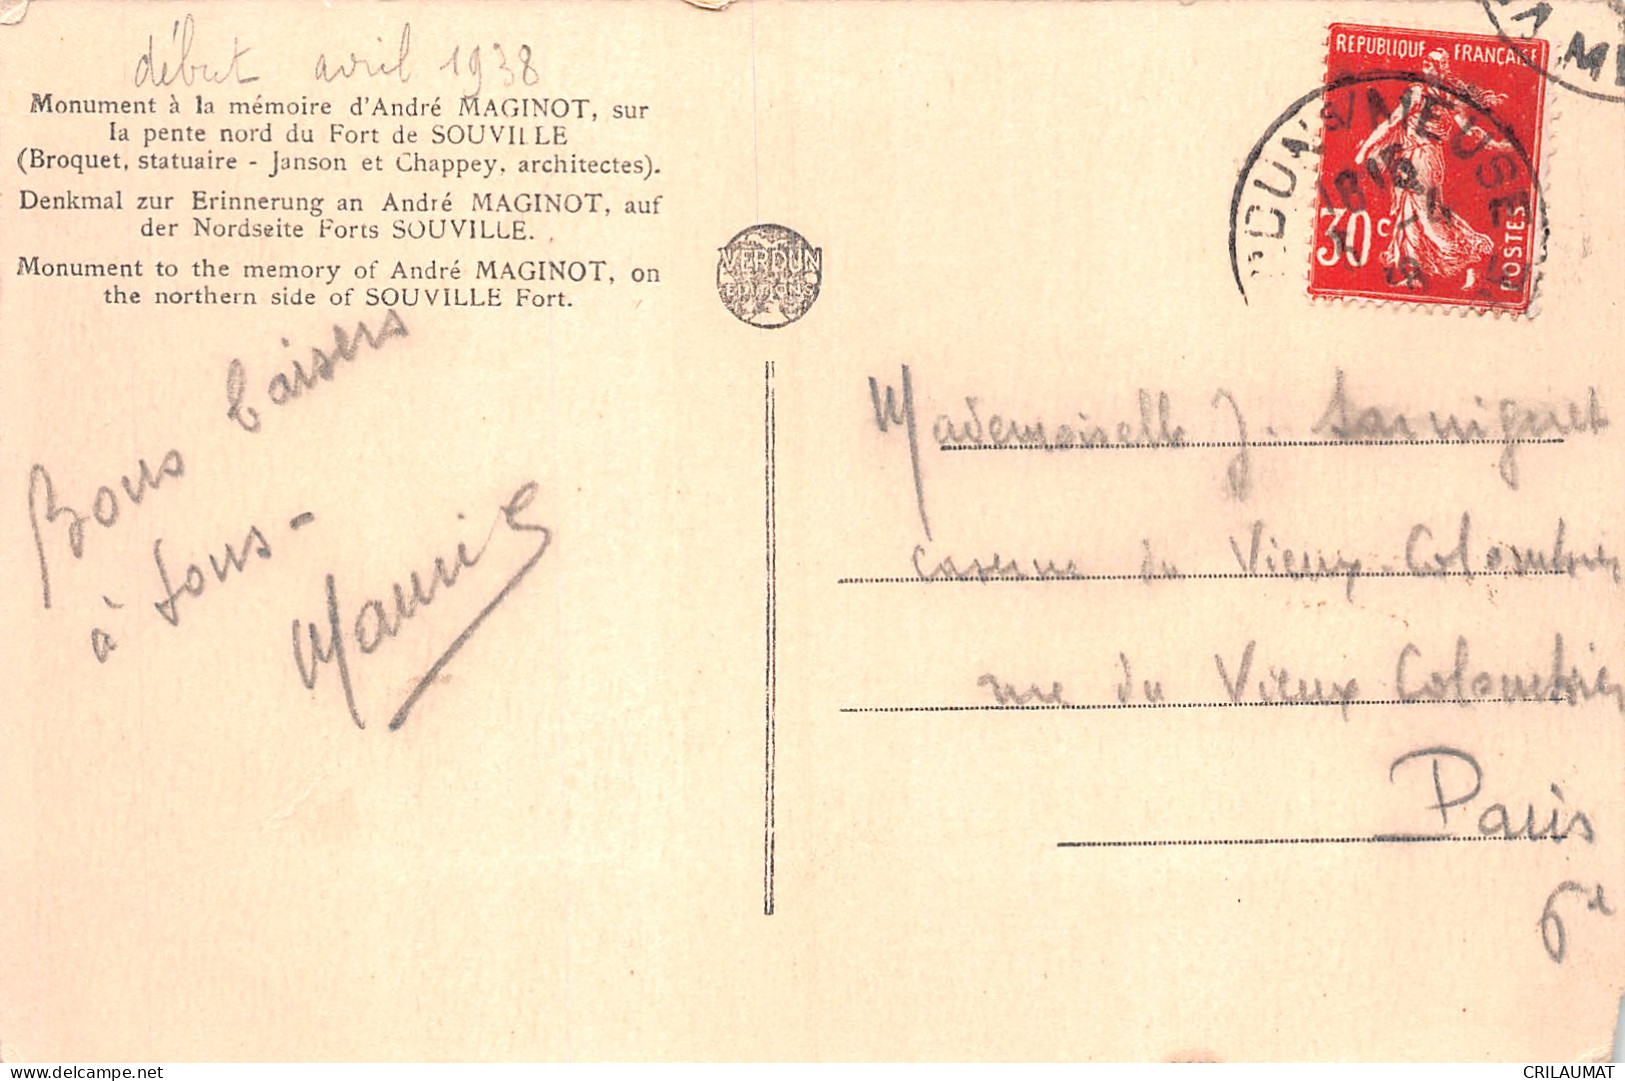 début avril 1938
Monument à la mémoire d'André MAGINOT, sur
la pente nord du Fort de SOUVILLE
(Broquet, statuaire - Janson et Chappey, architectes).
Denkmal zur Erinnerung an André MAGINOT, auf
der Nordseite Forts SOUVILLE.
Monument to the memory of André MAGINOT, on
the northern side of SOUVILLE Fort.
Bons baisers
à tous -
Maurice
VERDUN
EDITIONS
REPUBLIQUE FRANÇAISE
30 c
POSTES
DUN S/ MEUSE
18 15
Mademoiselle J.
caserne du Vieux-Colombier
rue du Vieux Colombier
Paris
6e
CRILAUMAT